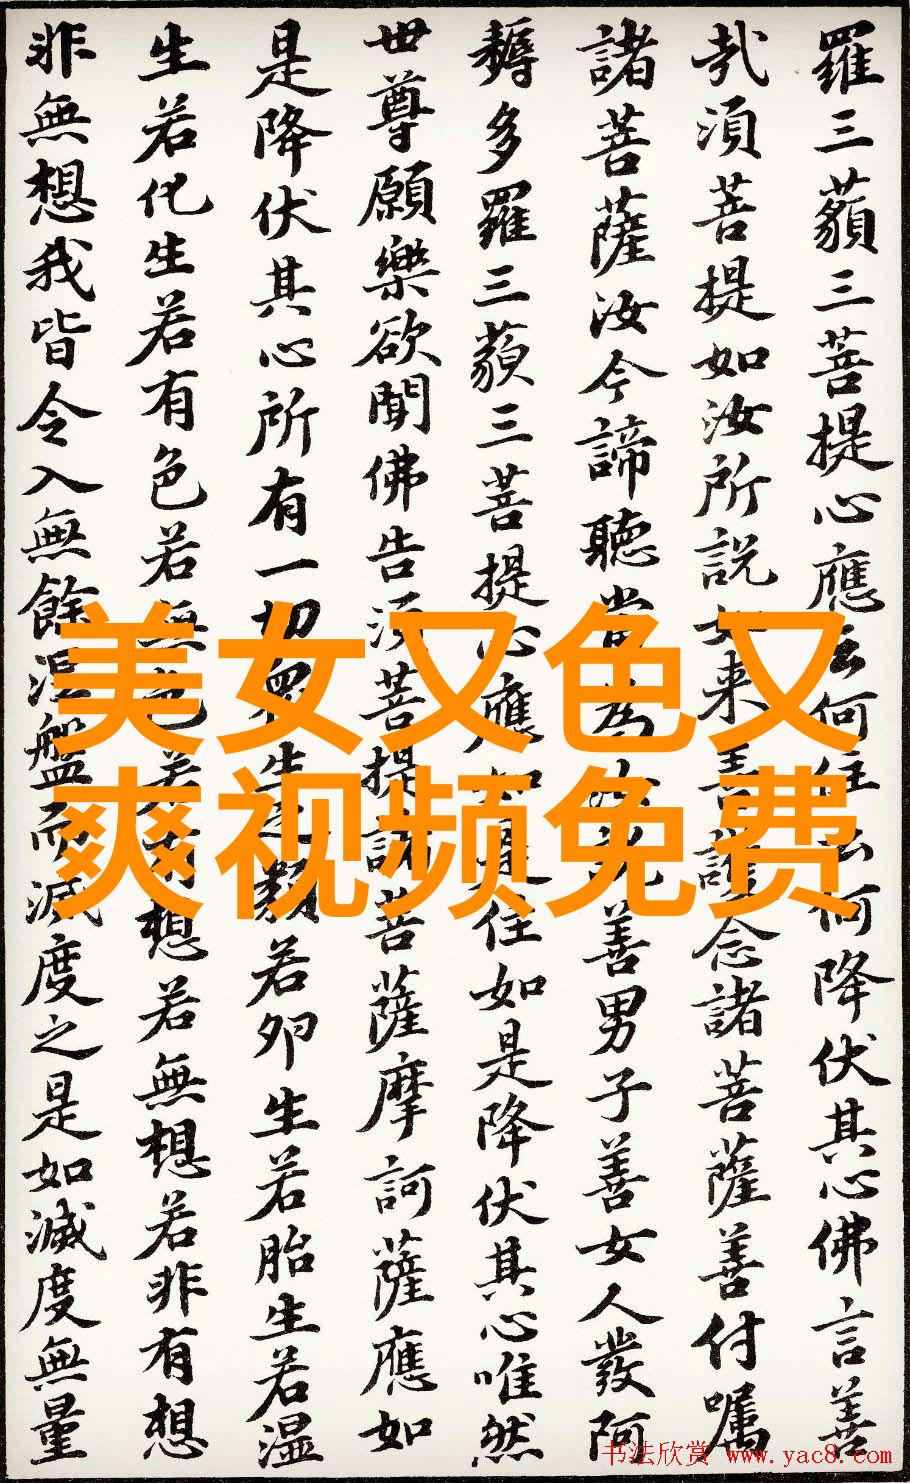 羅三藐三菩提心應云何住云何降伏其心佛言善
哉須菩提如汝所說如來善護念諸菩薩善付嘱
諸菩薩汝今諦聽當為汝說善男子善女人發阿
耨多羅三藐三菩提心應如是住如是降伏其心唯然
世尊願樂欲聞佛告須菩提諸菩薩摩訶薩應如
是降伏其心所有一切眾生之類若卵生若胎生若湿
生若化生若有色若無色若有想若無想若非有想
非無想我皆令入無餘涅盤而滅度之是如滅度無量
美女又色又
爽视频免费
书法欣赏 www.yac8.com